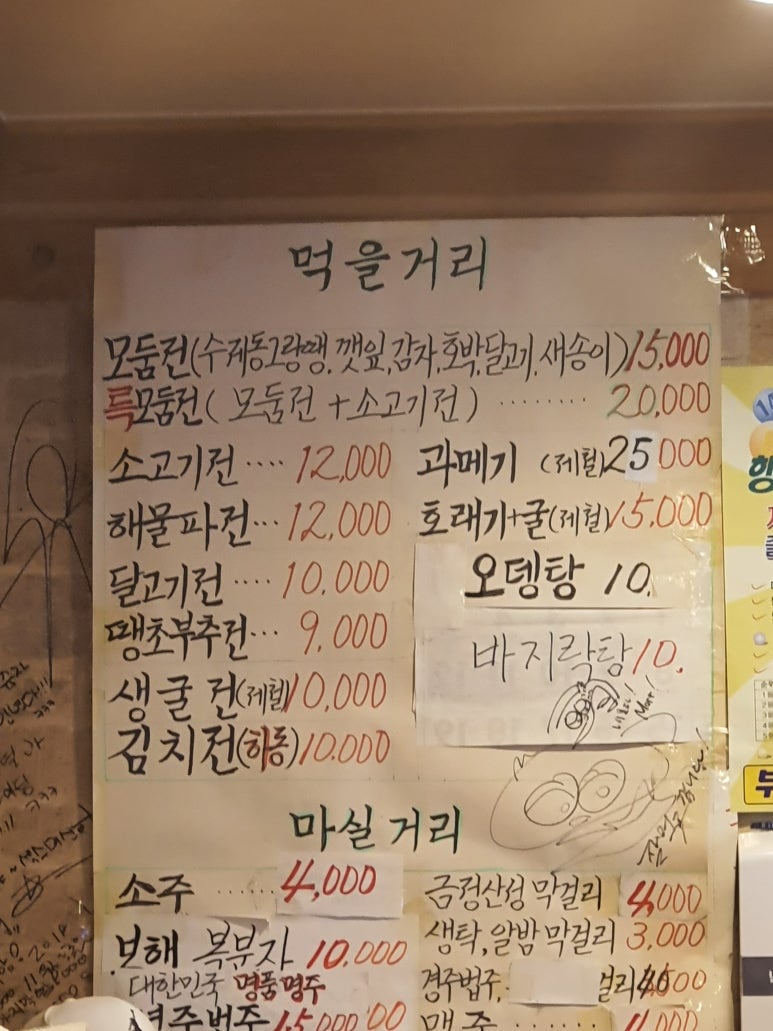 먹을거리
모둠전(수제동그랑땡,깻잎,감자,호박,달고기,새송이)15,000
특모둠전( 모둠전 +소고기전 ) ········ 20,000
소고기전 ···· 12,000
과메기 (제철)25000
해물파전··· 12,000
호래기+굴(제철)15,000
달고기전 ···· 10,000
오뎅탕 10.
땡초부추전··· 9,000
바지락탕10.
생굴전(제철)10,000
김치전(하동)10.000
마실거리
소주 ······ 4,000
금정산성 막걸리 4,000
보해 복분자 10.000
생탁,알밤 막걸리 3,000
대한민국 명품명주
경주법주, 걸리
경주법주 15,000
맥주 ······ 4,000